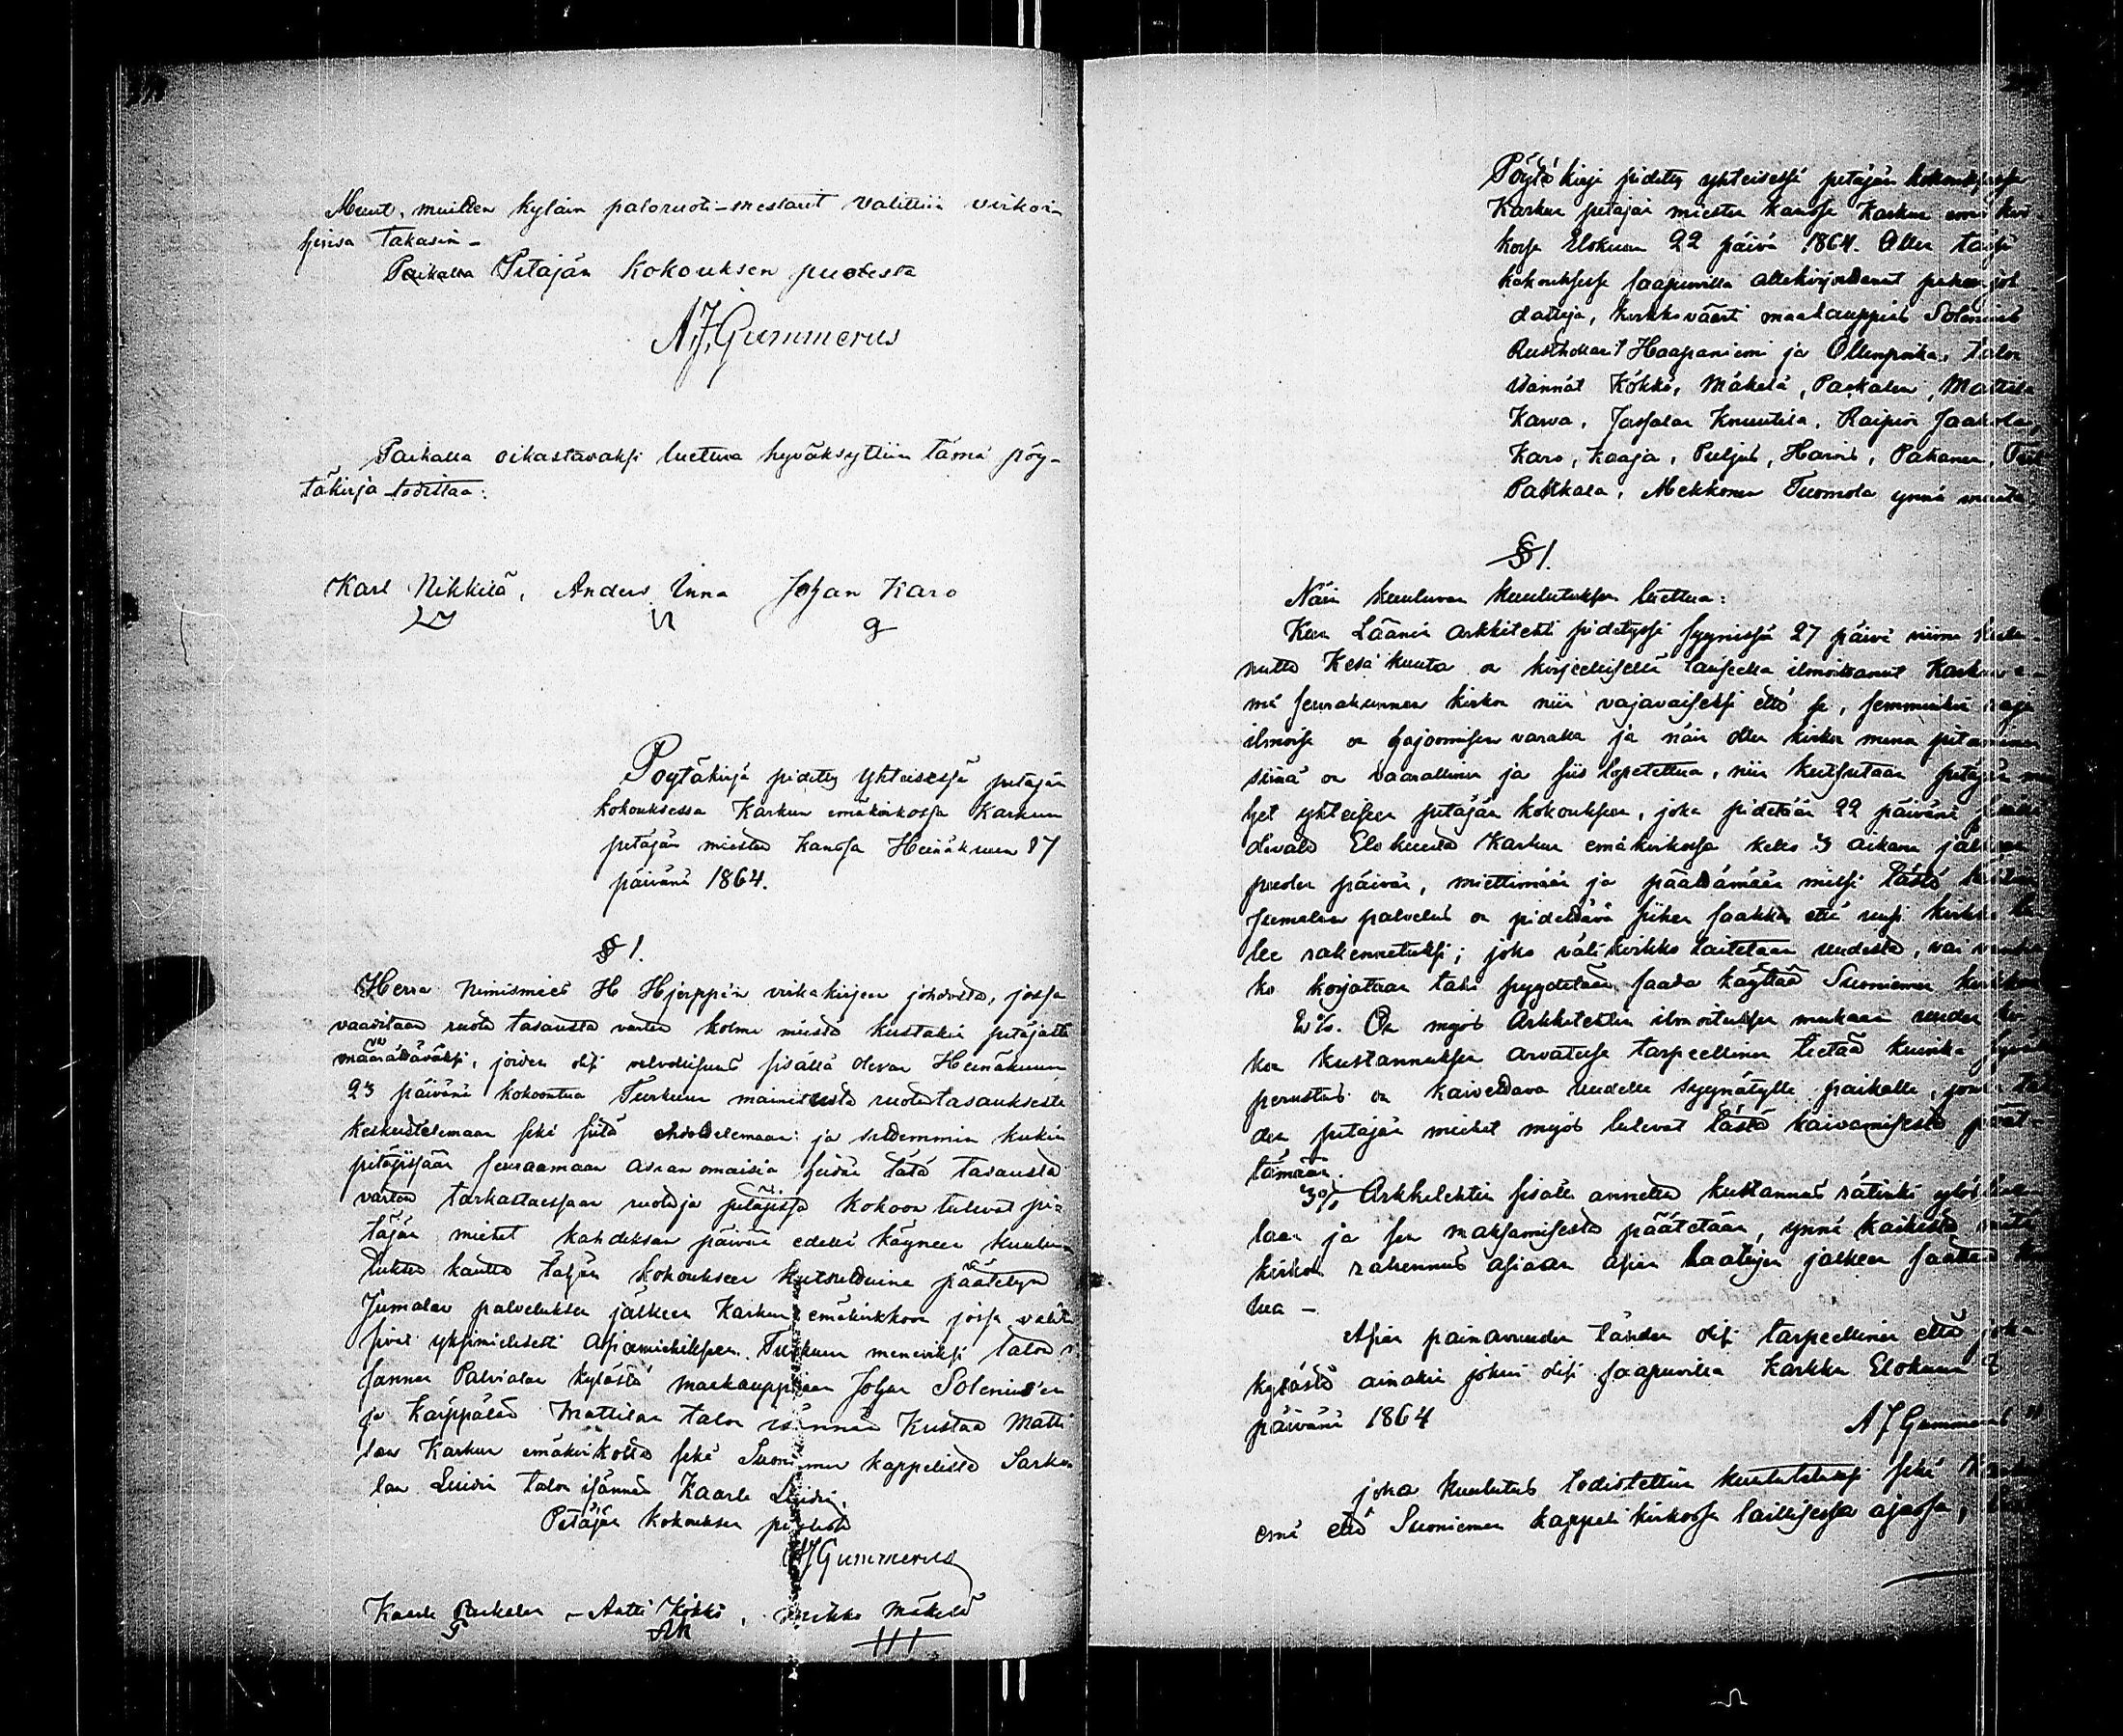 Muut, muitten kyläin paloruoti-mestarit valittiin virkoin
hinsa Takasin –
Pitäjän Kokouksen puolesta
A.J. Gummerus
Paikalla oikastavaksi luettua hyväksyttiin tämä pöy-
täkirja todistaa:
Karl Nikkilä, Anders Unna Johan Karo
Pöytäkirja pidetty Yhteisessä pitäjän
kokouksessa Karkun emäkirkossa Karkun
pitäjän miesten kanssa Heinäkuun 17
päivänä 1864.
§ 1.
Herra Nimismies H Hjerppe'n virkakirjeen johdosta, jossa
vaaditaan ruotu tasausta varten kolme miestä kustakin pitäjästä
määrättäväksi, joiden olisi velvollisuus sisällä olevan Heinäkuun
23 päivänä kokoontua Turkuun mainitusta ruodutasauksesta
keskustelemaan sekä sitä ehdoittelemaan: ja sittemmin kukin
pitäjässään seuraamaan asian omaisia heidän tätä tasausta
varten tarkastaessaan ruotuja pitäjissä kokoon tulivat pi-
täjän miehet kahdeksan päivää edellä käyneen kuulu
tuksen kautta tähän kokoukseen kutsuttuina päätetyn
Jumalan palveluksen jälkeen Karkun emäkirkkoon jossa valit
sivat yksimielisesti Asiamiehiksen Turkuun meneviksi talon
Palvialan kylästä maakauppiaan Johan Solenius'en
ja Kärppälän Mattilan talon isännän Kustaa Matti
lan Karkun emäkirkosta sekä Suoniemen kappelista Sarko
lan Luidin talon isännän Kaarle Luidin.
Pitäjän kokouksen puolesta
A J Gummerus
Kaarle Parkalan – Antti Kökkö, Mikko Mäkelä
AK
Pöytäkirja pidetty yhteisessä pitäjän kokouksessa
Karkun pitäjän miesten kanssa Karkun emä kir-
kossa Elokuun 22 päivä 1864. Ollen tässä
kokouksessa saapuvilla allekirjoittanut puheenjoh
dattaja, kirkkoväärti maakauppias Solenius
Rusthollarit Haapaniemi ja Talon
isännät Kökkö, Mäkelä, Parkalan, Mattila
Karva, Jassalan Knuutila, Raipion Jaakola,
Karo, Kaaja, Puljus, Harris, Pakanen,
Pakkala, Mekkonen Tuomola ynnä muita
§ 1.
Näin kuuluvan kuulutuksen luettua:
Kun Läänin arkkitehti pidetyssä syynissä 27 päivä viime kulu-
nutta Kesäkuuta on kirjeellisellä lauseella ilmoittanut Karkun e-
mä seurakunnan kirkon niin vajavaiseksi että se, semminkin raju
ilmoissa on hajoomisen varalla ja näin ollen kirkon menoin pitäminen
siinä on vaarallinen ja siis lopetettua, niin kutsutaan pitäjän mie
het yhteiseen pitäjän kokoukseen, joka pidetään 22 päivänä sisällä
olevata Elokuuta Karkun emäkirkossa kello 3 aikana jälkeen
puolen päivän, miettimään ja päättämään missä tästä
Jumalan palvelus on pidettävä siihen saakka että uusi kirkko tu
lee rakennetuksi; joko väli kirkko laitetaan uudesta, vai
ko korjataan tahi pyydetään saada käyttää Suoniemen kirkkoa
2o/o. On myös Arkkitehtin ilmoituksen mukaan uuden kir
kon kustannuksen arvatessa tarpeellinen tietää kuinka syvään
perustus on kaivettava uudelle syynätylle paikalle,
den pitäjän miehet myös tulevat tästä kaivamisesta päät-
tämään.
3o/o Arkkitehtin sisälle annettu kustannus rätinki
taan ja sen maksamisesta päätetään, ynnä kaikesta mitä
kirkon rakennus asiaan asian laatujen jälkeen saattaa
lua –
Asian painavuuden tähden olisi tarpeellinen että joka
kylästä ainakin joku olisi saapuvilla Karkku Elokuun 7
päivänä 1864
A J Gummerus
joka kuulutus todistettiin kuulutetuksi sekä Karkun
emä että Suoniemen kappeli kirkossa laillisessa ajassa,